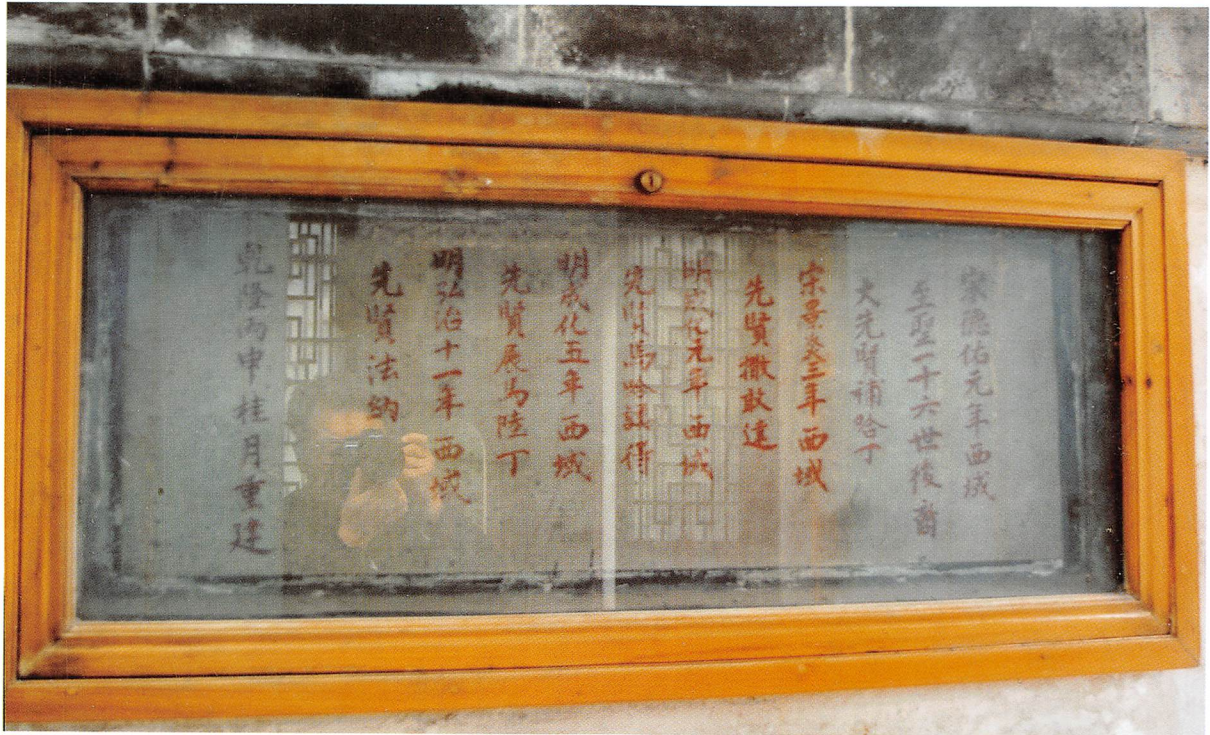 宋德佑元年西域
至聖一十六世後裔
大先賢補哈丁
宋景炎三年西域
先賢撒敢達
明成化元年西域
先賢馬哈謨得
明成化五年西域
先賢展馬陸丁
明弘治十一年西域
先賢法納
乾隆丙申桂月重建